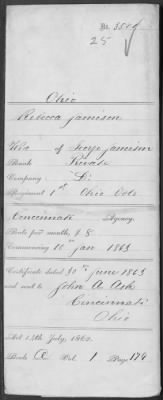 No. 3504
25
Ohio
Rebecca Jamison
Wid. of George Jamison
Rank Private
Company "L"
Regiment 1st Ohio Vols
Cincinnati Agency.
Rate per month, $8
Commencing 10" Jan 1863
Certificate dated 30" June 1863
and sent to John A. Ash
Cincinnati
Ohio
Act 14th July, 1862.
Book Vol. 1 Page 174